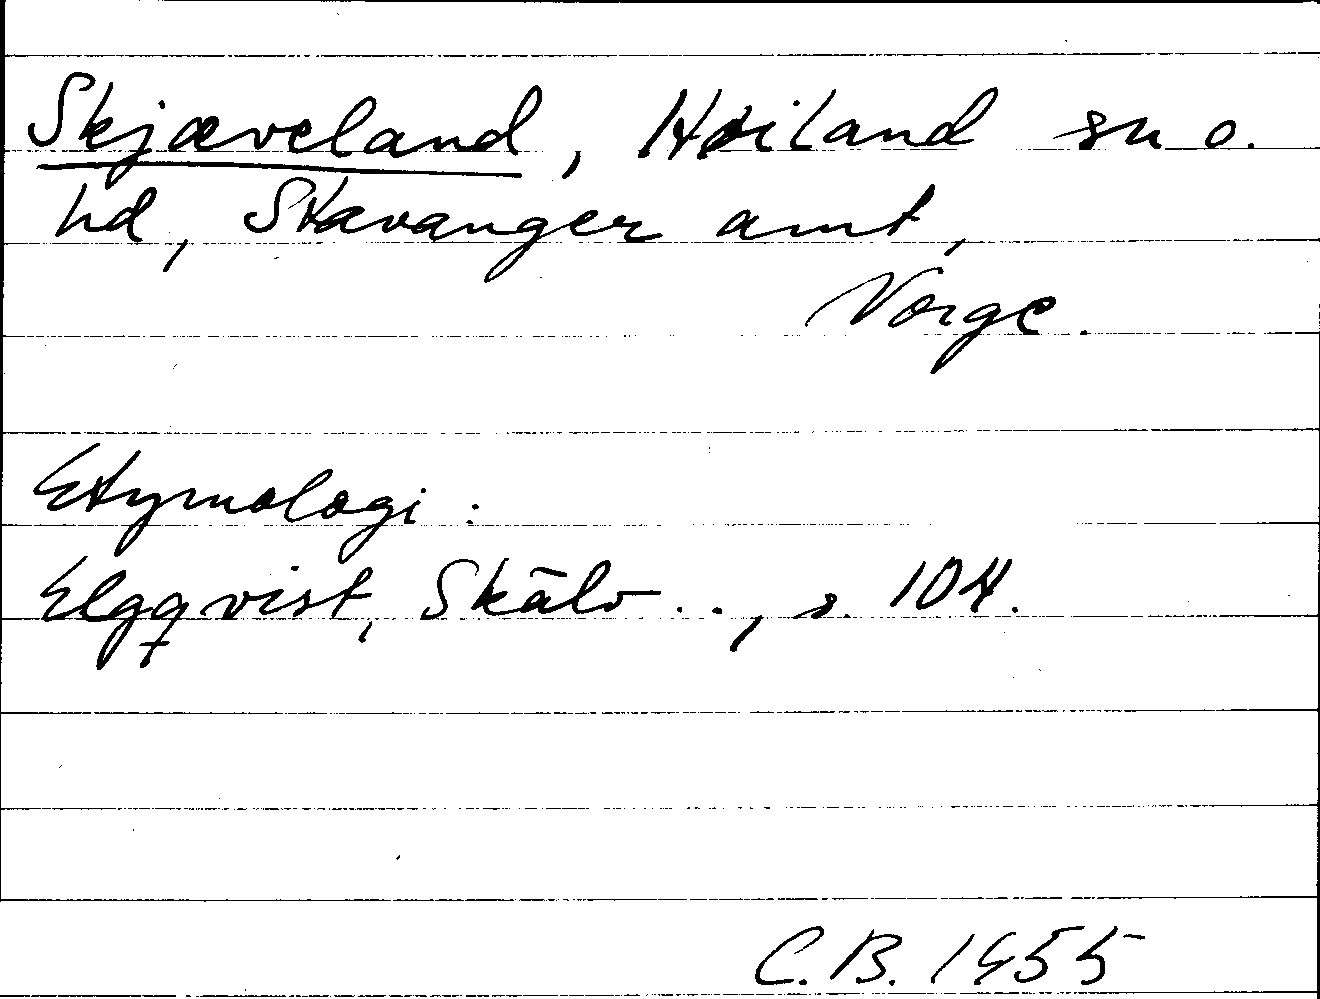 Skjæveland, Høiland sn o.
hd, Stavanger amt,
Norge.
Etymologi:
Elgqvist, Skälv.., s. 104.
C.B. 1955